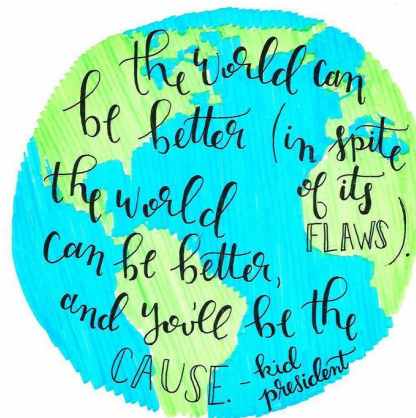 the world can
be better (in spite
of its
FLAWS).
the world
can be better,
and you'll be the
CAUSE. - kid
president